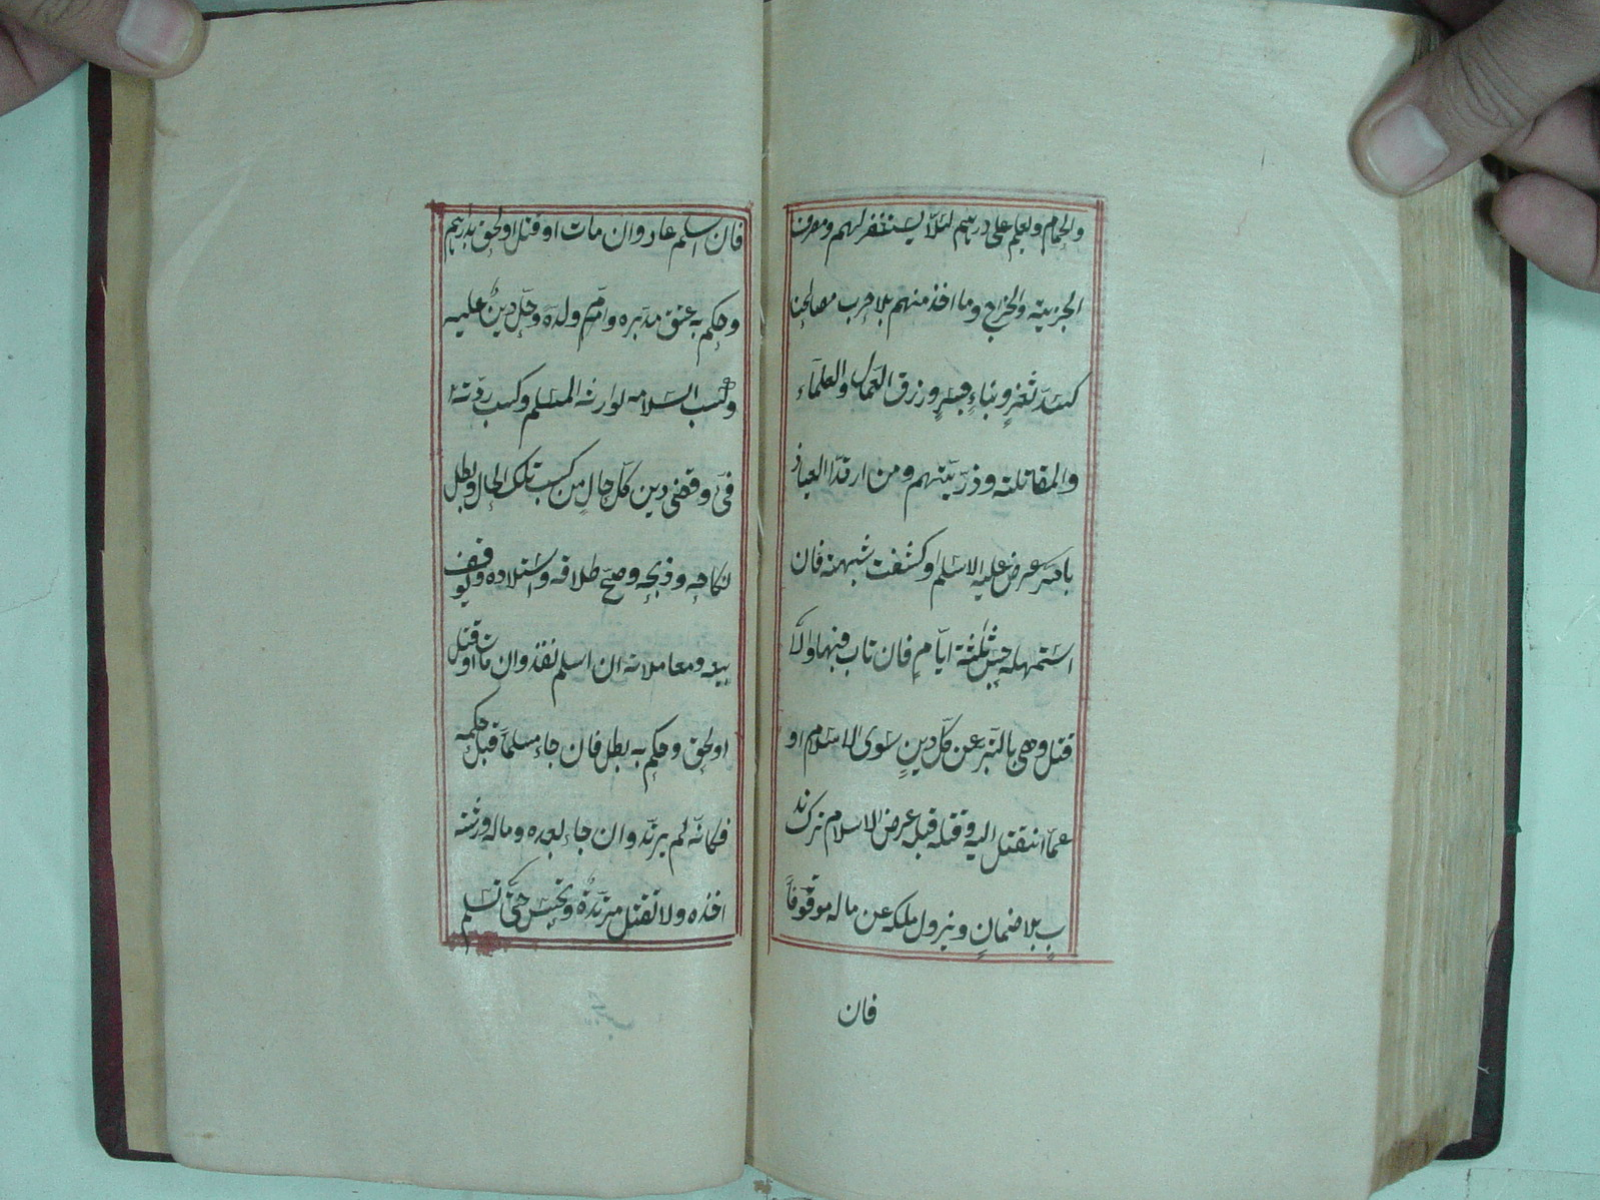 والحمام ويعلم على دارهم لئلا يستغفر لهم ومصرف
الجزية والخراج وما اخذ منهم بلا حرب مصالحنا
كسد ثغر وبناء جسر ورزق العمال والعلماء
والمقاتلة وذريتهم ومن ارتد العياذ
بالله عرض عليه الاسلم وكشفت شبهته فان
استمهله حبس ثلثة ايام فان تاب فبها والا
قتل وهي بالتبرء عن كل دين سوى الاسلام او
عما انتقل اليه وقتله قبل عرض الاسلام ترك ند
ب بلا ضمان ويزول ملكه عن ماله موقوفا
فان
فان اسلم عاد وان مات او قتل او لحق بدارهم
وحكم به عتق مدبره وام ولده وحل دين عليه
وكسب اسلامه لوارثه المسلم وكسب ردته
فئ وقضى دين كل حال من كسب تلك الحال وبطل
نكاحه وذبحه وصح طلاقه واستلاده ويوقف
بيعه ومعاملاته ان اسلم نفذ وان مات او قتل
او لحق وحكم به بطل فان جاء مسلما قبل حكمه
فكانه لم يرتد وان جاء بعده وماله ورثته
اخذه ولا تقتل مرتدة وتحبس حتى تسلم